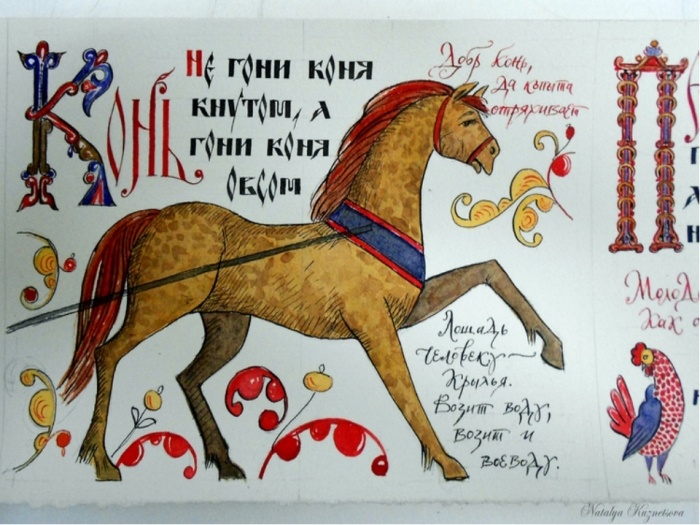 Конь
Не гони коня
кнутом, а
гони коня
овсом
Добр конь,
да копыта
отряхивает
Лошадь
человеку
крылья.
Возит воду,
возит и
воеводу.
Молод
Как
Natalya Kuznetsova